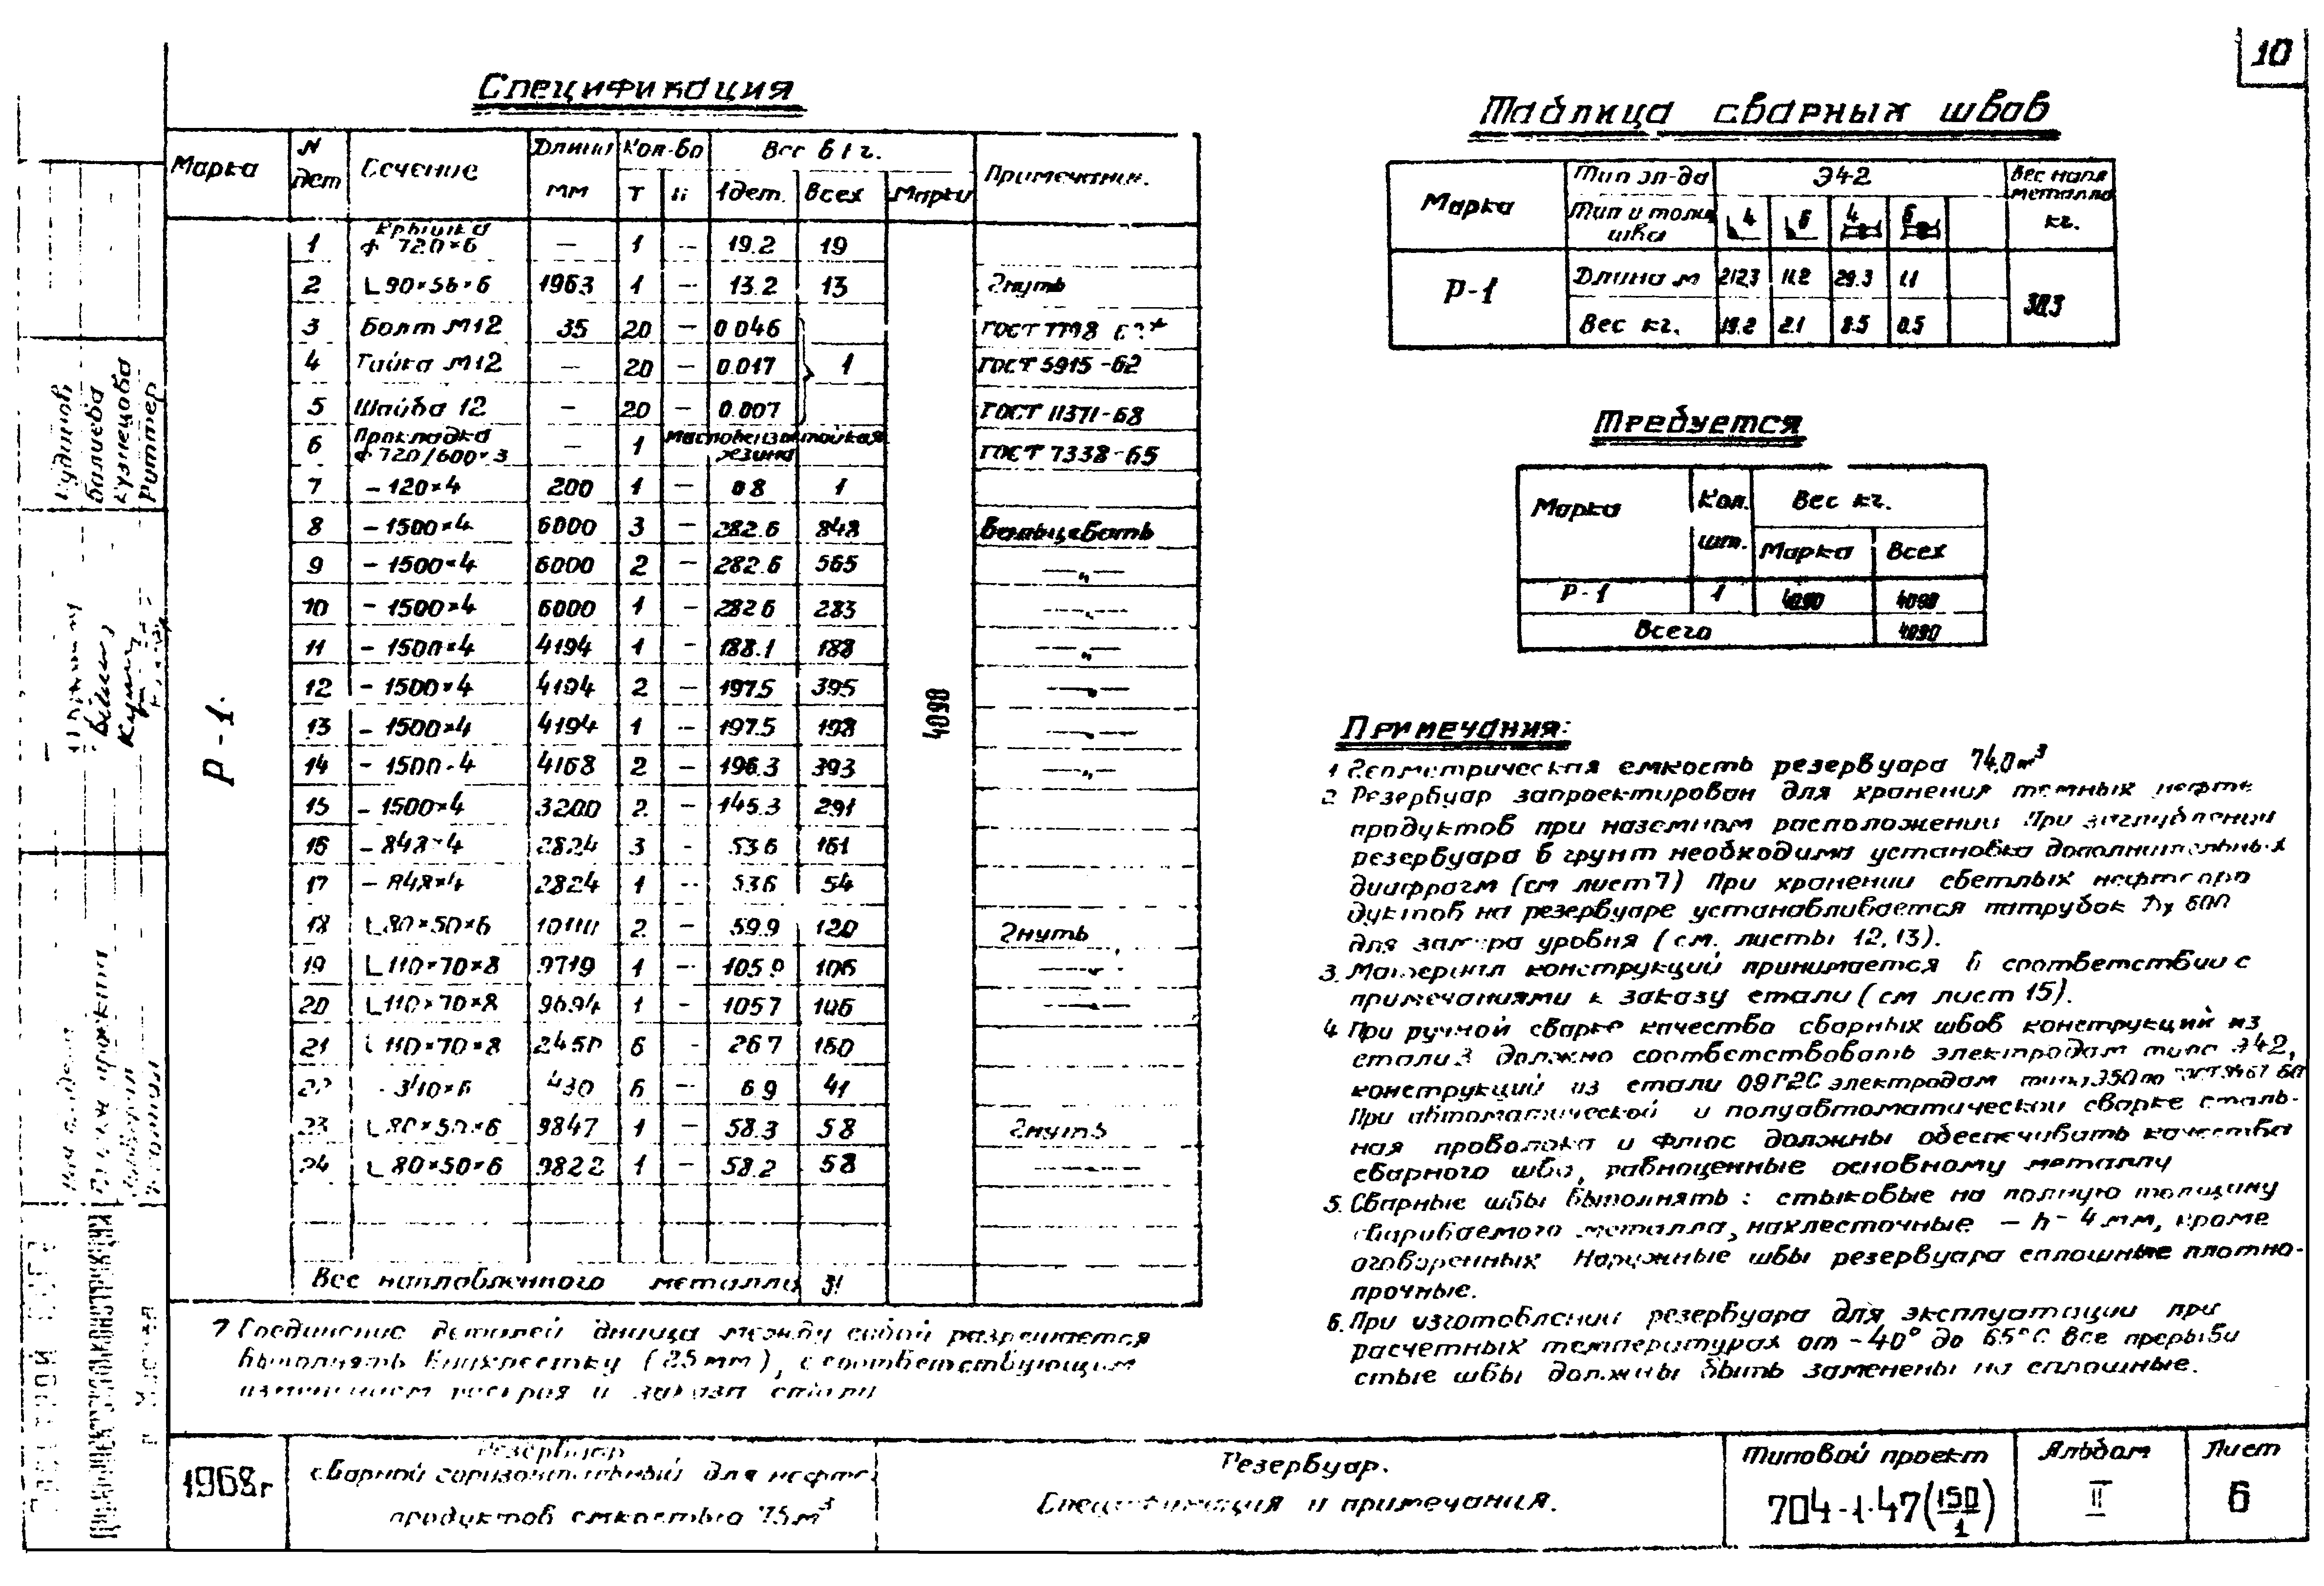 10
Спецификация
Марка N дет Сечение Длина мм Кол-во Т Н Вес в кг. 1дет. Всех Марки Примечания.
Р-1. 4090
1 Крышка ф 720×6 — 1 — 19.2 19
2 L 90×56×6 1963 1 — 13.2 13 Гнуть
3 Болт М12 35 20 — 0.046 ГОСТ 7798
4 Гайка М12 — 20 — 0.017 1 ГОСТ 5915-62
5 Шайба 12 — 20 — 0.007 ГОСТ 11371-68
6 Прокладка ф 720/600×3 — 1 маслобензостойкая резина ГОСТ 7338-65
7 – 120×4 200 1 — 0.8 1
8 – 1500×4 6000 3 — 282.6 848 Вальцевать
9 – 1500×4 6000 2 — 282.6 565 —"—
10 – 1500×4 6000 1 — 282.6 283 —"—
11 – 1500×4 4194 1 — 188.1 188 —"—
12 – 1500×4 4194 2 — 197.5 395 —"—
13 – 1500×4 4194 1 — 197.5 198 —"—
14 – 1500×4 4168 2 — 196.3 393 —"—
15 – 1500×4 3200 2 — 145.3 291
16 – 848×4 2824 3 — 53.6 161
17 – 848×4 2824 1 — 53.6 54
18 L 80×50×6 2 — 59.9 120 Гнуть
19 L 110×70×8 9719 1 — 105.9 106 —"—
20 L 110×70×8 9694 1 — 105.7 106 —"—
21 L 110×70×8 2450 6 — 26.7 160
22 – 340×6 430 6 — 6.9 41
23 L 80×50×6 9847 1 — 58.3 58 Гнуть
24 L 80×50×6 9822 1 — 58.2 58 —"—
Вес наплавленного металла 31
7 Соединение деталей днища между собой разрешается
выполнять внахлестку (25мм), с соответствующим
изменением раскроя и заказа стали
Таблица сварных швов
Марка Тип эл-да Э42 Вес напл металла кг.
Тип и толщ шва 4 6 4 6
Р-1 Длина м 212.3 11.2 29.3 1.1
Вес кг. 19.2 2.1 8.5 0.5
Требуется
Марка Кол. шт. Вес кг. Марка Всех
Р-1 1 4090 4090
Всего 4090
Примечания:
1 Геометрическая емкость резервуара 74.0 м³
2 Резервуар запроектирован для хранения темных нефте
продуктов при наземном расположении При заглублении
резервуара в грунт необходима установка дополнительных
диафрагм (см лист 7) При хранении светлых нефтепро
дуктов на резервуаре устанавливается патрубок Ду 600
для замера уровня (см. листы 12,13).
3. Материал конструкций принимается в соответствии с
примечаниями к заказу стали (см лист 15).
4 При ручной сварке качества сварных швов конструкций из
стали 3 должно соответствовать электродам типа Э42,
конструкций из стали 09Г2С электродам типа Э50 по ГОСТ 9467-60
При автоматической и полуавтоматической сварке сталь-
ная проволока и флюс должны обеспечивать качества
сварного шва, равноценные основному металлу
5. Сварные швы выполнять: стыковые на полную толщину
свариваемого металла, нахлесточные – h- 4 мм, кроме
оговоренных Наружные швы резервуара сплошные плотно-
прочные.
6. При изготовлении резервуара для эксплуатации при
расчетных температурах от -40° до 65°С все прерыви
стые швы должны быть заменены на сплошные.
Кудинов
Балиева
Кузнецова
Руттер
1968г
Резервуар
сварной горизонтальный для нефте-
продуктов емкостью 75м³
Резервуар.
Спецификация и примечания.
Типовой проект
704-1-47(150/1)
Альбом
II
Лист
6